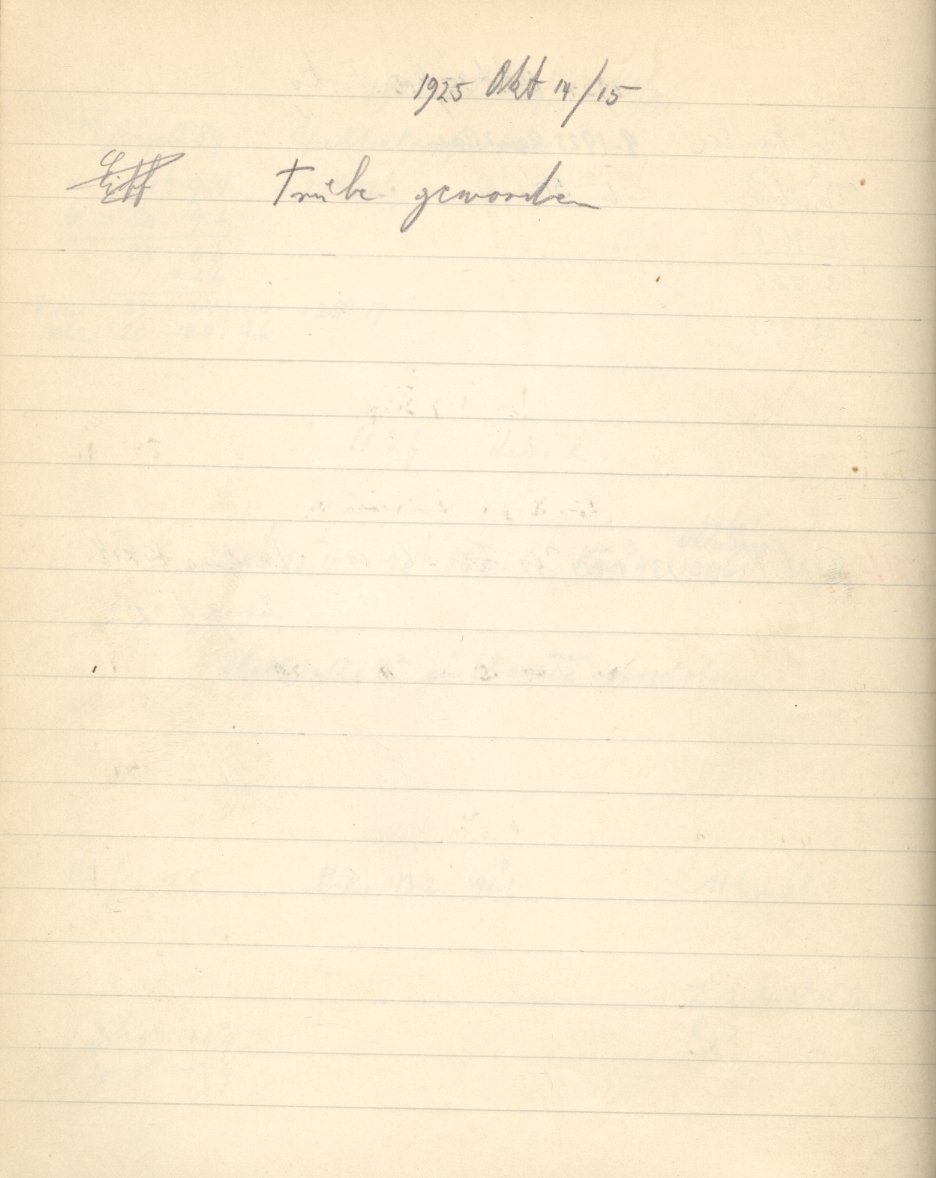 1925 Okt 14/15
Trübe geworden